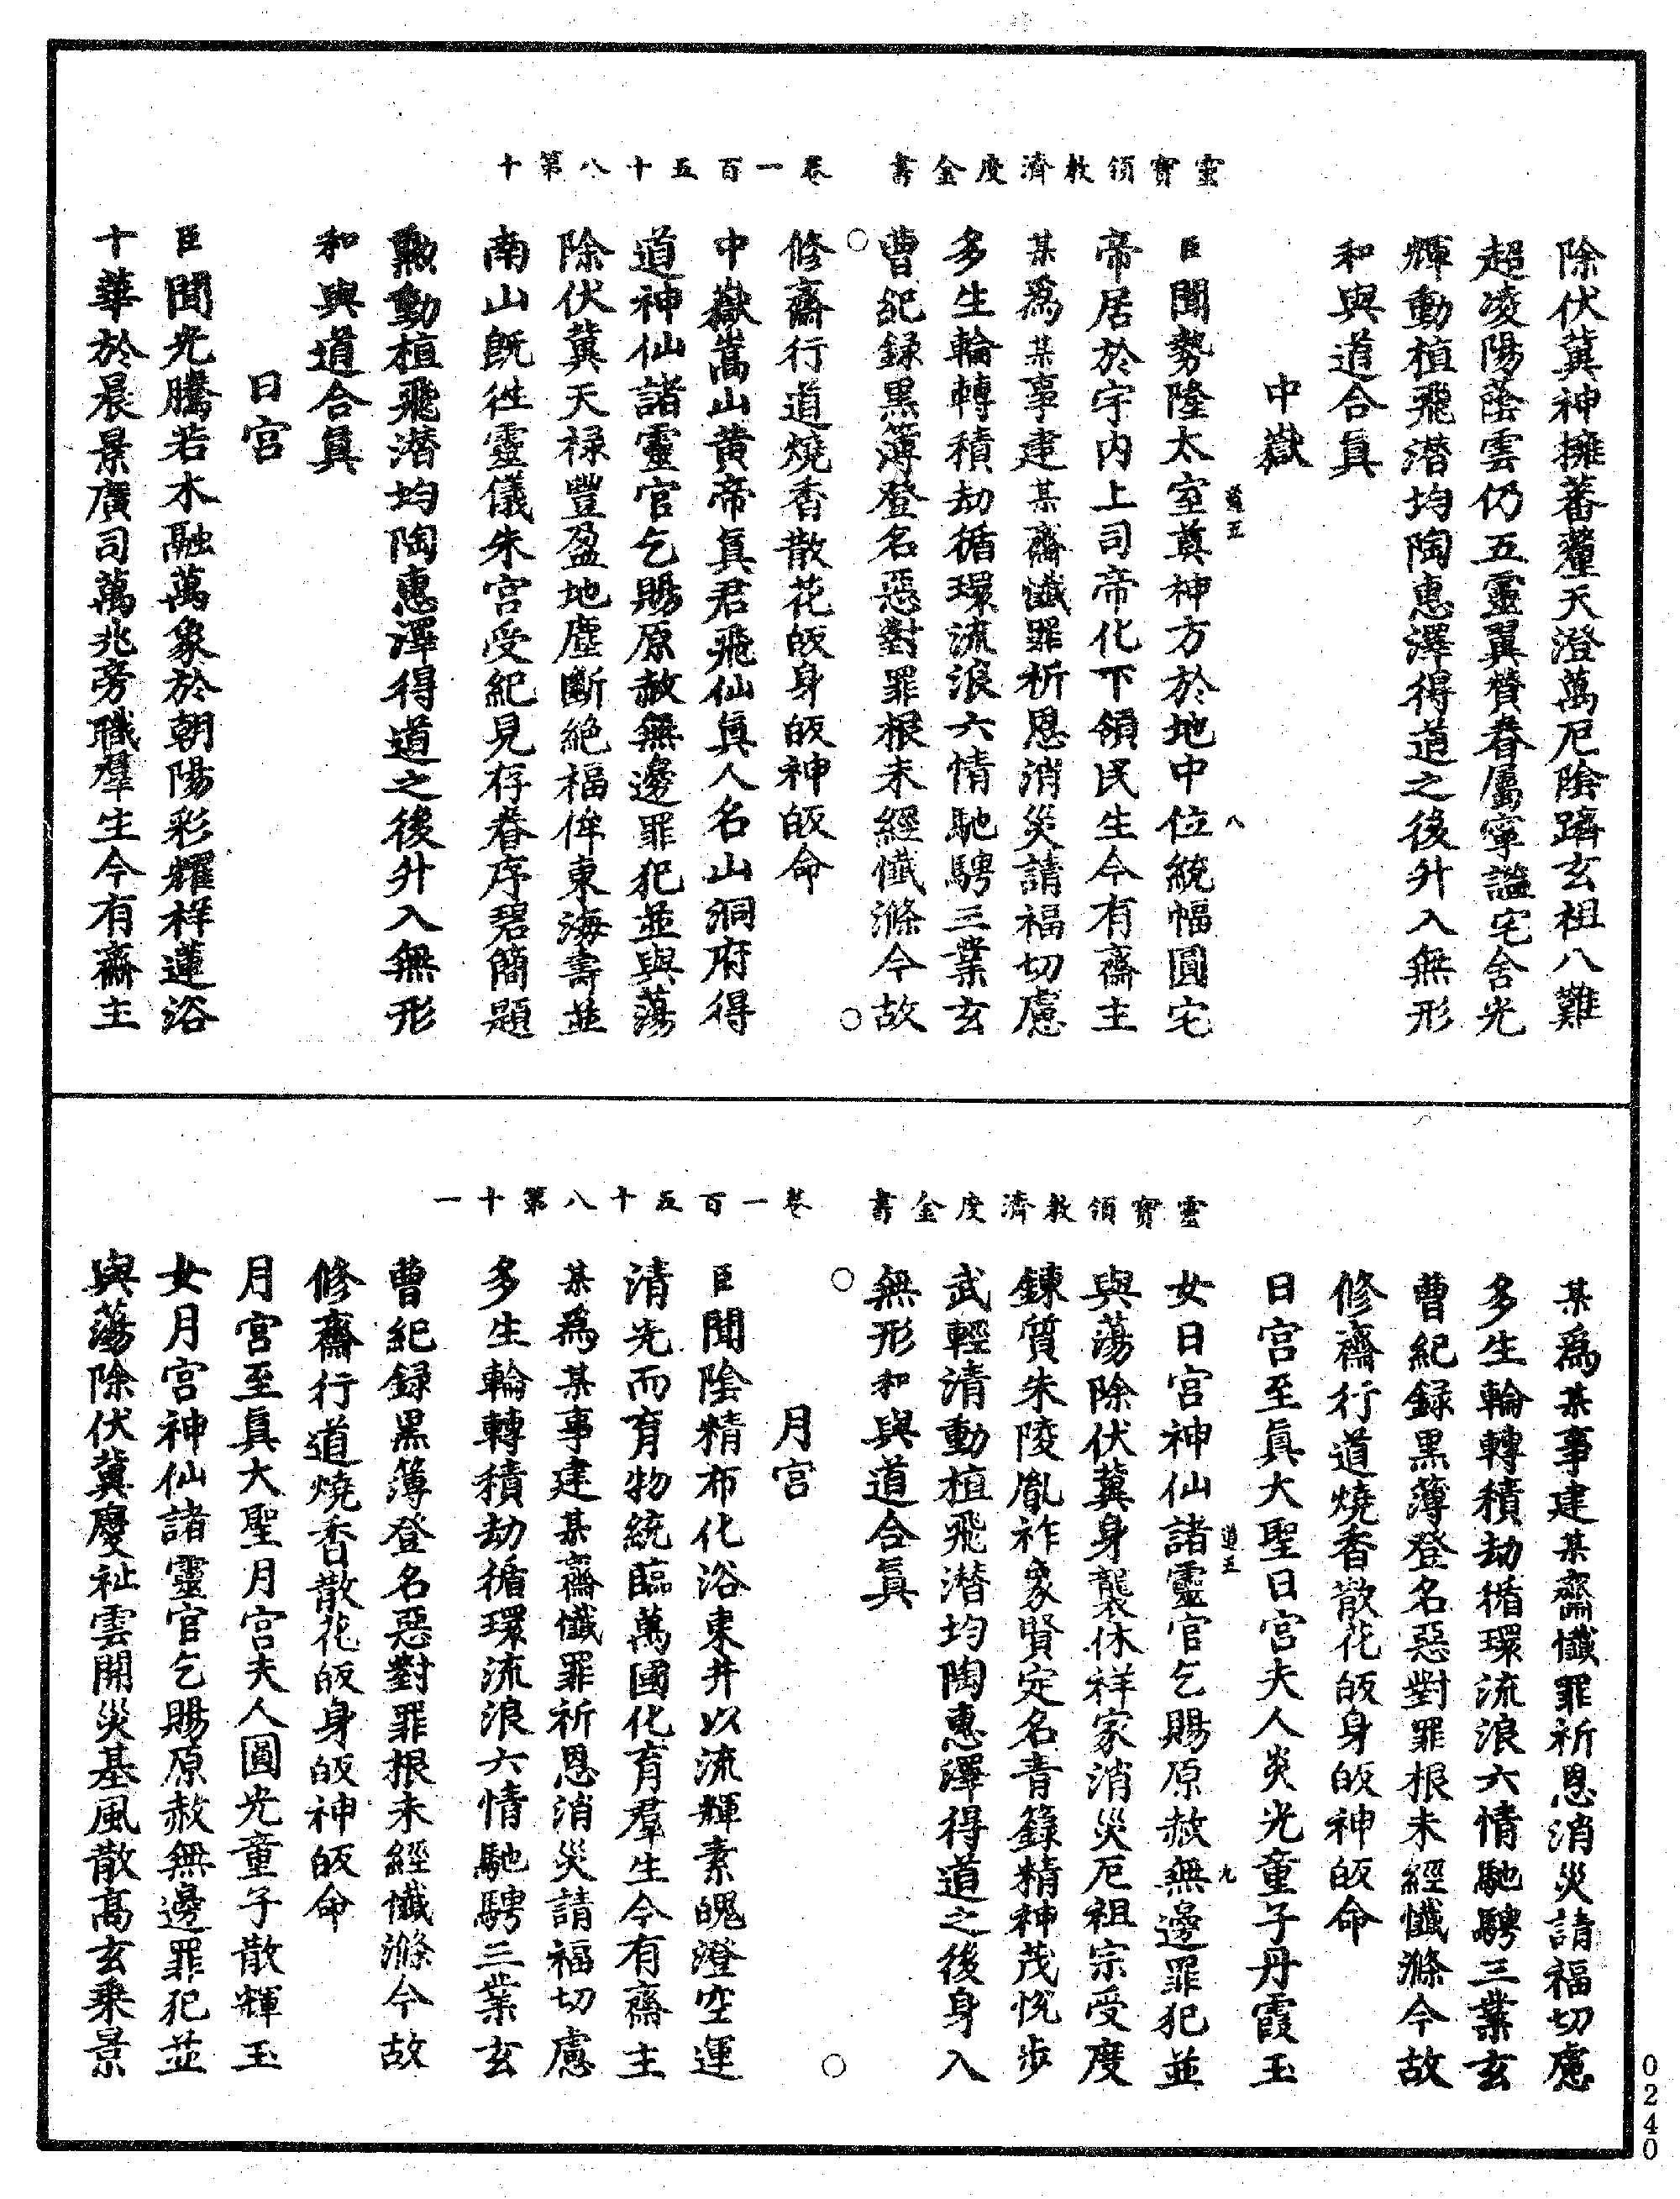 靈寶領教濟度金書　卷一百五十八第十
除伏冀神擁蕃釐天澄萬厄陰躋玄祖八難
超凌陽蔭雲仍五靈翼贊眷屬寧謐宅舍光
輝動植飛潛均陶惠澤得道之後升入無形
和與道合眞
中嶽
臣聞勢隆太室奠神方於地中位統幅圓宅
道五　八
帝居於宇内上司帝化下領民生今有齋主
某爲某事建某齋懺罪祈恩消災請福切慮
多生輪轉積劫循環流浪六情馳騁三業玄
曹紀録黒簿登名惡對罪根未經懺滌今故
修齋行道燒香散花皈身皈神皈命
中嶽嵩山黄帝眞君飛仙眞人名山洞府得
道神仙諸靈官乞賜原赦無邊罪犯並與蕩
除伏冀天禄豐盈地塵斷絶福侔東海壽並
南山旣徃靈儀朱宮受紀見存眷序碧簡題
勲動植飛潛均陶惠澤得道之後升入無形
和與道合眞
日宮
臣聞光騰若木融萬象於朝陽彩耀祥蓮浴
十華於晨景廣司萬兆旁職羣生今有齋主
靈寶領教濟度金書　卷一百五十八第十一
某爲某事建某齋懺罪祈恩消災請福切慮
多生輪轉積劫循環流浪六情馳騁三業玄
曹紀録黒簿登名惡對罪根未經懺滌今故
修齋行道燒香散花皈身皈神皈命
日宮至眞大聖日宮夫人炎光童子丹霞玉
女日宮神仙諸靈官乞賜原赦無邊罪犯並
道五　九
與蕩除伏冀身襲休祥家消災厄祖宗受度
鍊質朱陵胤祚象賢定名青籙精神茂悦步
武輕清動植飛潛均陶惠澤得道之後身入
無形和與道合眞
月宮
臣聞陰精布化浴東井以流輝素魄澄空運
清光而育物統臨萬國化育羣生今有齋主
某爲某事建某齋懺罪祈恩消災請福切慮
多生輪轉積劫循環流浪六情馳騁三業玄
曹紀録黒簿登名惡對罪根未經懺滌今故
修齋行道燒香散花皈身皈神皈命
月宮至眞大聖月宮夫人圓光童子散輝玉
女月宮神仙諸靈官乞賜原赦無邊罪犯並
與蕩除伏冀慶祉雲開災基風散高玄乘景
0240